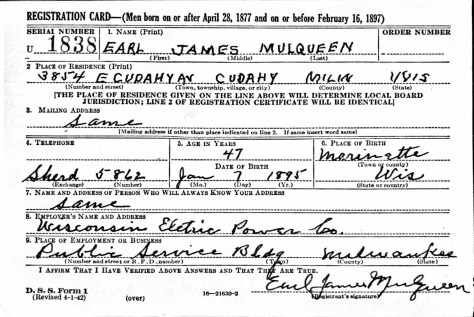 REGISTRATION CARD—(Men born on or after April 28, 1877 and on or before February 16, 1897)
SERIAL NUMBER 1. NAME (Print) ORDER NUMBER
U 1838 EARL JAMES MULQUEEN
(First) (Middle) (Last)
2 PLACE OF RESIDENCE (Print)
3854 E CUDAHY AV CUDAHY MILW WIS
(Number and street) (Town, township, village, or city) (County) (State)
[THE PLACE OF RESIDENCE GIVEN ON THE LINE ABOVE WILL DETERMINE LOCAL BOARD
JURISDICTION; LINE 2 OF REGISTRATION CERTIFICATE WILL BE IDENTICAL]
3. MAILING ADDRESS
Same
[Mailing address if other than place indicated on line 2. If same insert word same]
4. TELEPHONE 5. AGE IN YEARS 6. PLACE OF BIRTH
47 Marinette
DATE OF BIRTH (Town or county)
Sherd 5862 Jan 7 1895 Wis
(Exchange) (Number) (Mo.) (Day) (Yr.) (State or country)
7. NAME AND ADDRESS OF PERSON WHO WILL ALWAYS KNOW YOUR ADDRESS
Same
8. EMPLOYER'S NAME AND ADDRESS
Wisconsin Electric Power Co.
9. PLACE OF EMPLOYMENT OR BUSINESS
Public Service Bldg Milwaukee
(Number and street or R. F. D. number) (Town) (County) (State)
I AFFIRM THAT I HAVE VERIFIED ABOVE ANSWERS AND THAT THEY ARE TRUE.
D. S. S. Form 1
(Revised 4-1-42) (over) 16—21630-2 Earl James Mulqueen
(Registrant's signature)